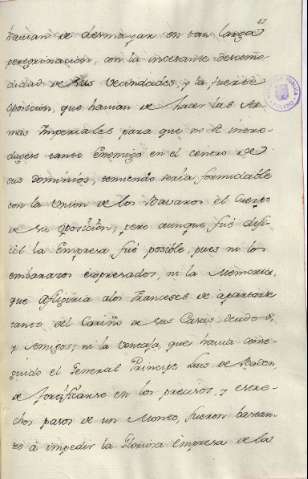 havian de desmayar en tan larga
peregrinacion, con la incesante
de sus vecindades, y la fuerte
oposicion, que havian de hacer las Ar-
mas Imperiales para que no se intro-
dugese tanto Enemigo en el centro de
sus dominios, temiendo seria formidable
con la Union de los Bavaros el Cuerpo
de su oposicion; pero aunque fué difi-
cil la Empresa fué posible, pues ni los
embarazos expresados, ni la Memoria,
que afligiria alos Franceses de apartarse
tanto, del Cariño de sus Casas deudos,
y Amigos; ni la ventaja, que havia conse-
guido el General Principe Luis de Baden,
de fortificarse en los precisos, y estre-
chos pasos de un Monte, fueron bastan-
tes à impedir la Empresa de los